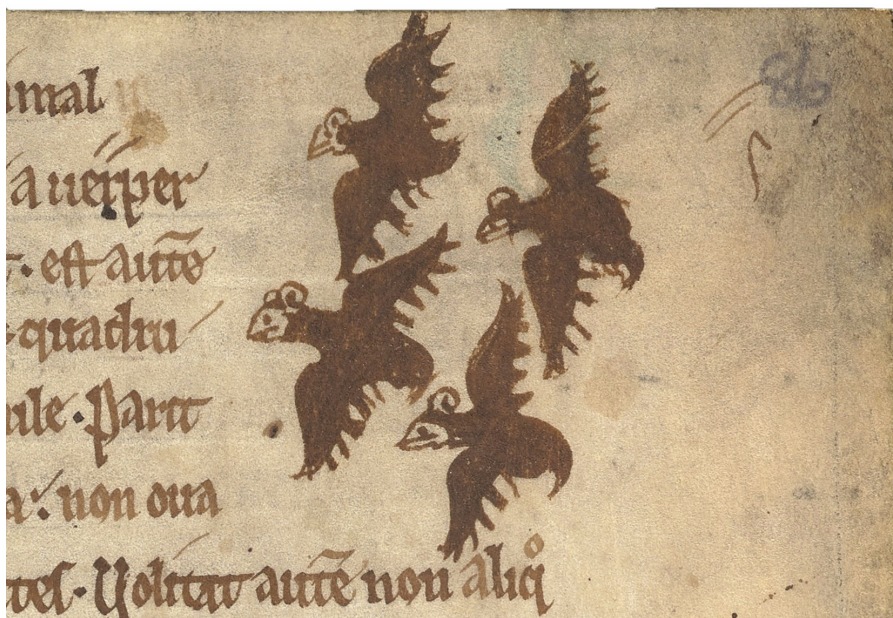 86
imal
a uesꝑer
est autē
quadru
ile. Parit
a: non oua
tes. Uolitat autē non aliqͦ